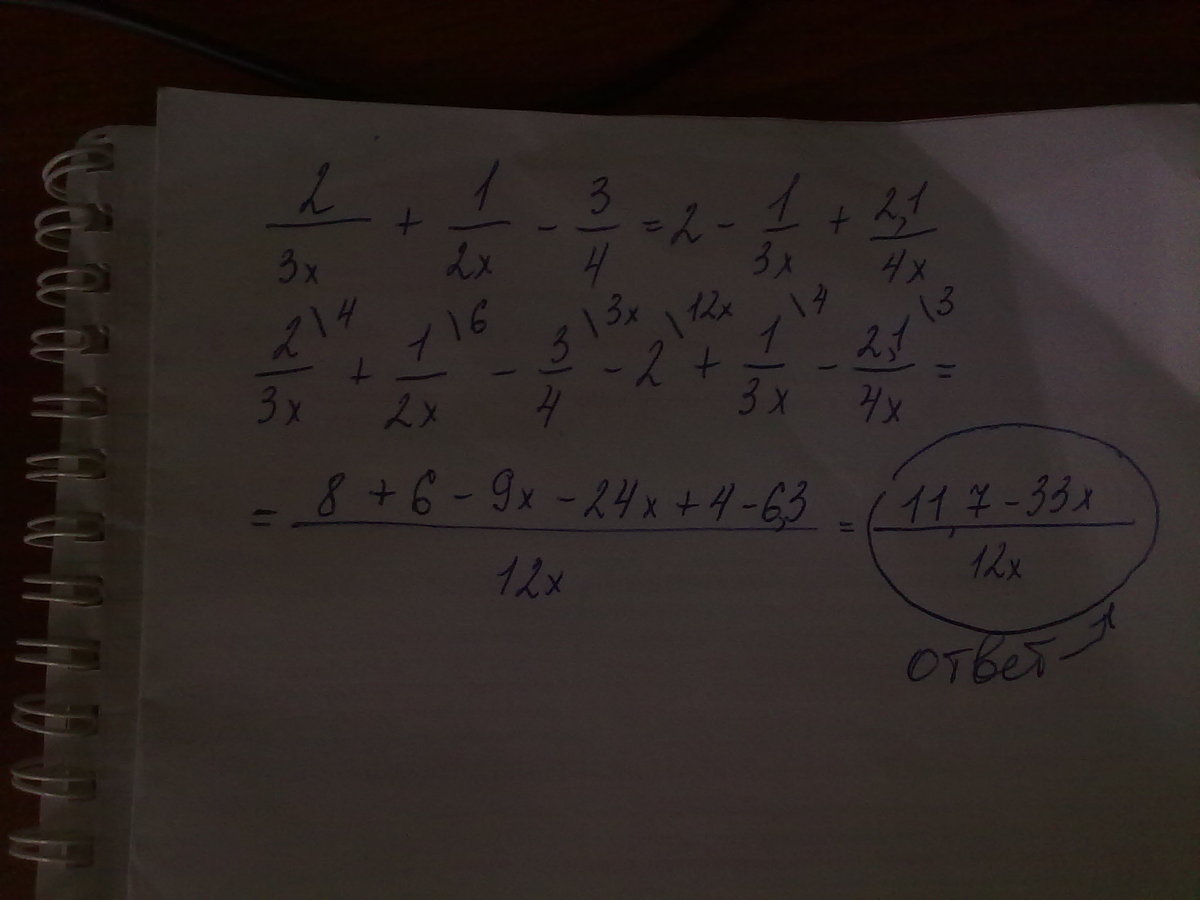 2/3x + 1/2x - 3/4 = 2 - 1/3x + 2,1/4x
2\4/3x + 1\6/2x - 3\3x/4 - 2\12x + 1\4/3x - 2,1\3/4x =
= 8 + 6 - 9x - 24x + 4 - 6,3/12x = 11,7 - 33x/12x
ответ